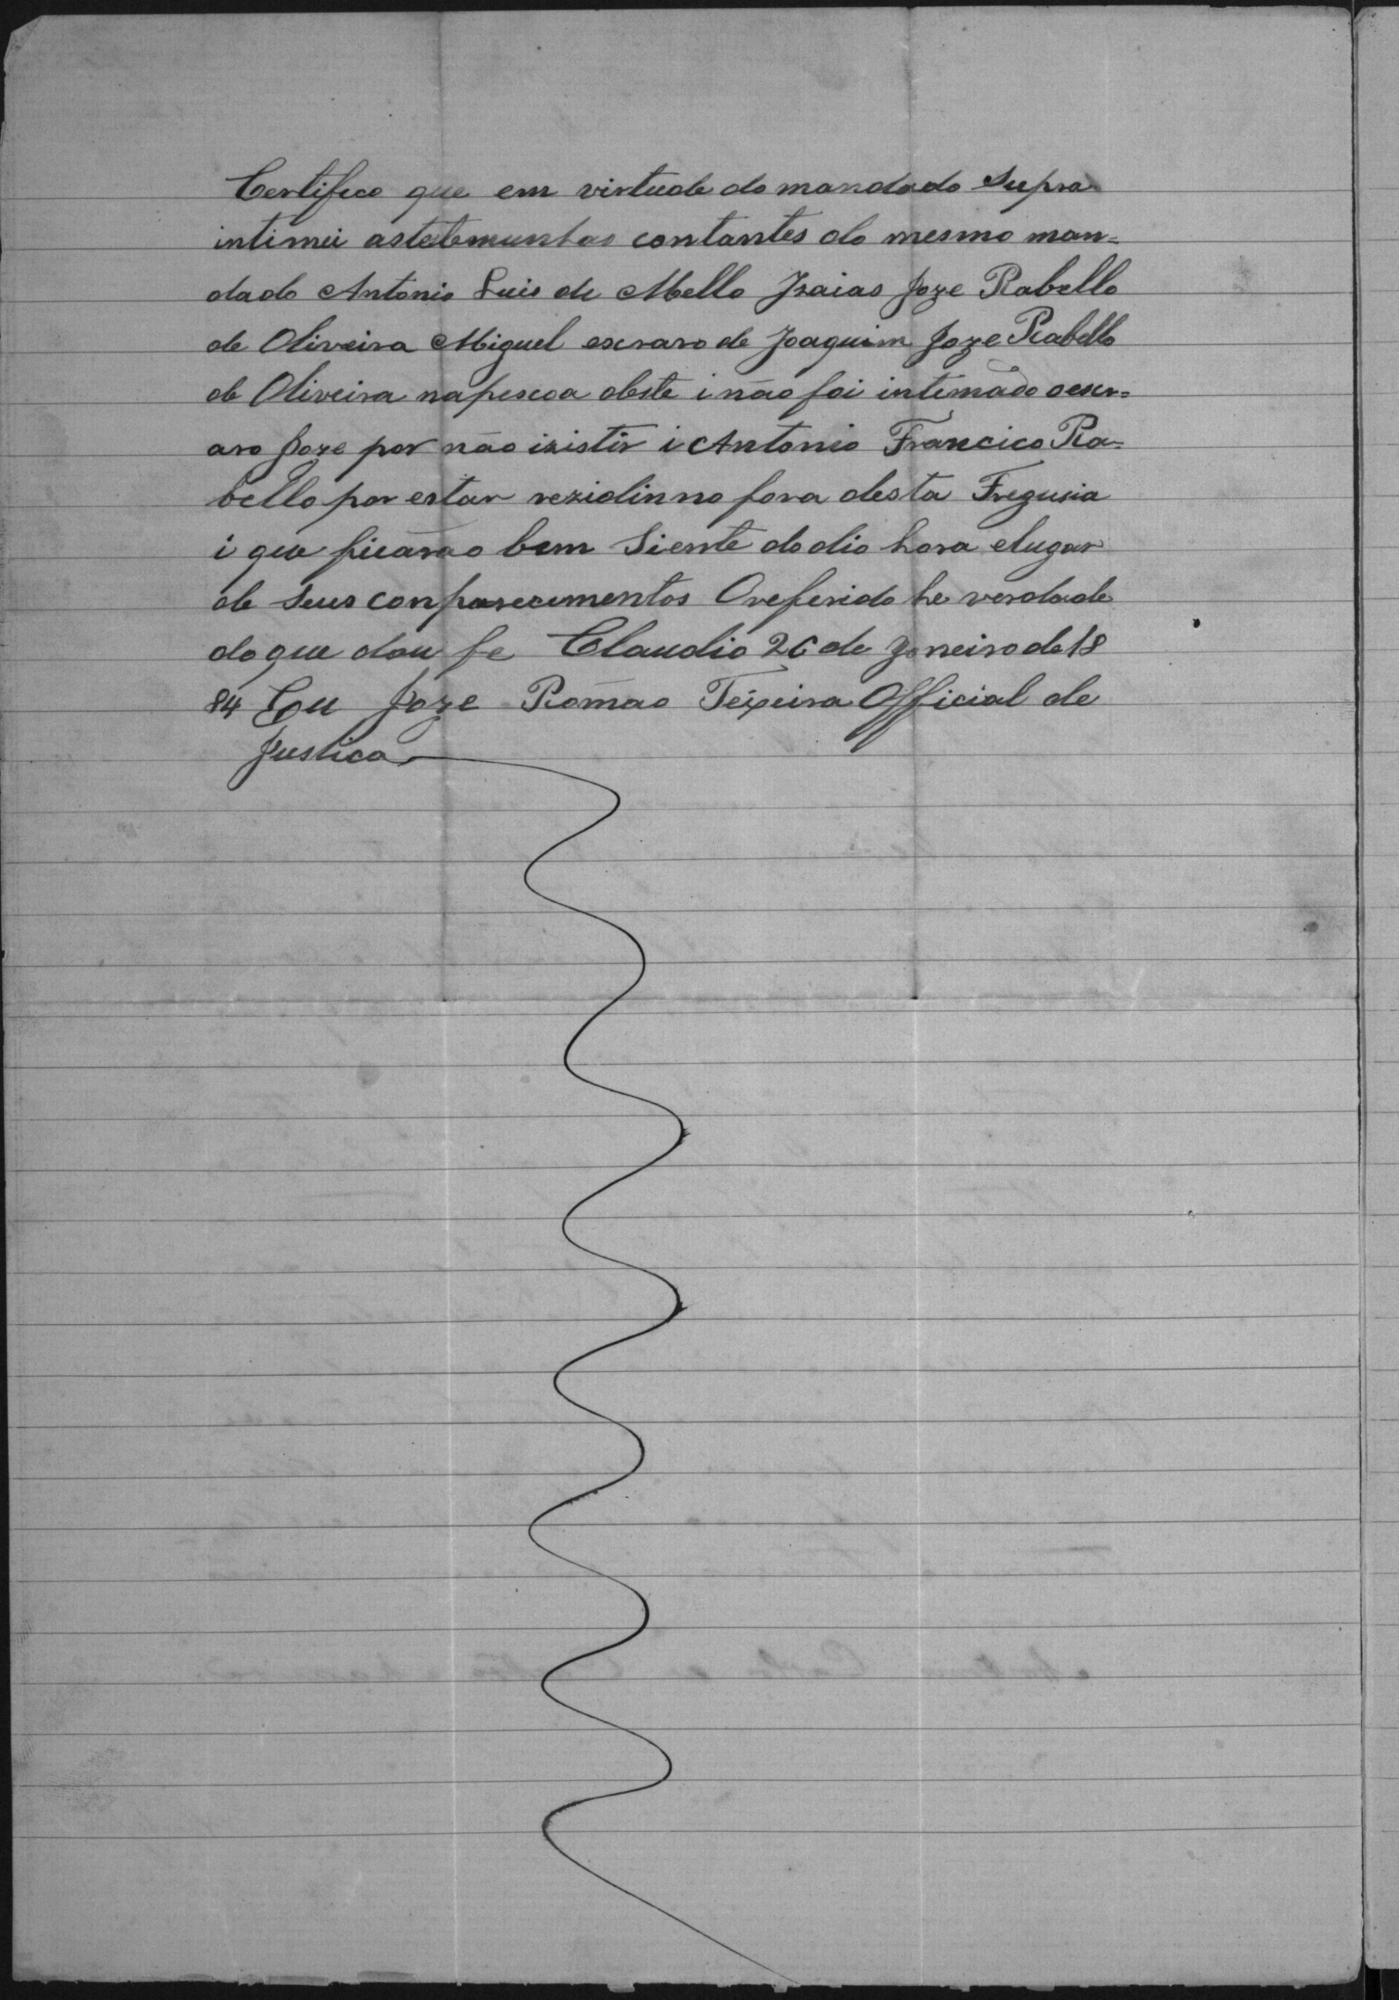 Certifico que em virtude do mandado Supra
intimei as tetemunhas contantes do mesmo man=
dado Antonio Luis de Mello Izaias Joze Rabello
de Oliveira Miguel escravo de Joaquim Joze Rabello
de Oliveira na pescoa deste i não foi intimado o escr=
avo Joze por não izistir i Antonio Francico Ra=
bello por estar rezidinno fora desta Fregusia
i que ficarão bem Siente do dia hora e lugar
de Seus conparecimentos O referido he verdade
do que dou fe Claudio 26 de Janeiro de 18
84 Eu Joze Romão Teixeira Official de
Justica